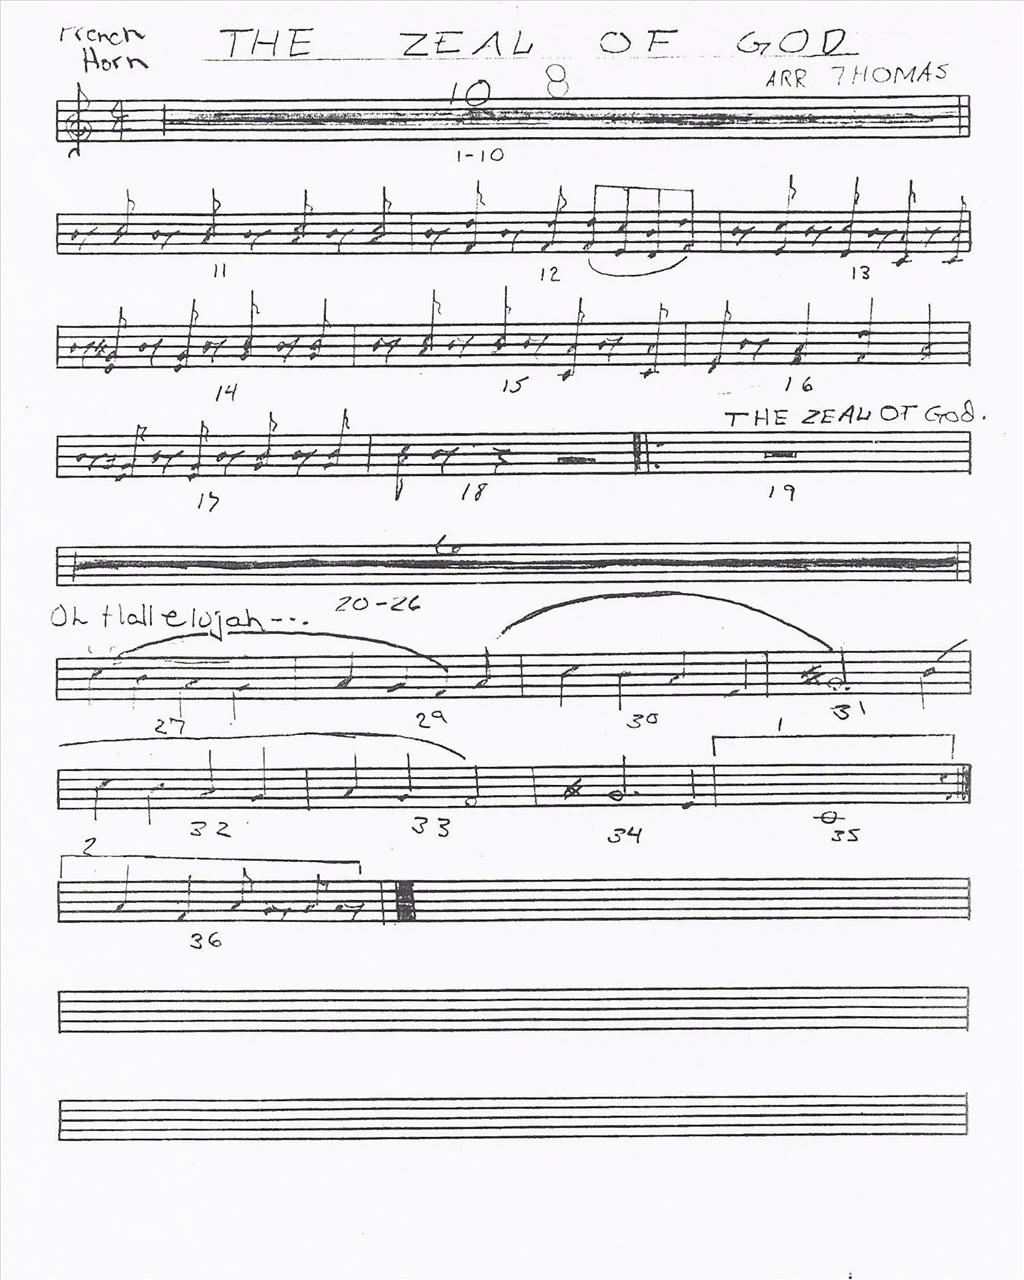 French
Horn
THE ZEAL OF GOD
ARR THOMAS
10 8
1-10
11 12 13
14 15 16
THE ZEAL OF GOD.
17 18 19
6
20-26
Oh Hallelujah---
27 29 30 31
1
32 33 34 35
2
36